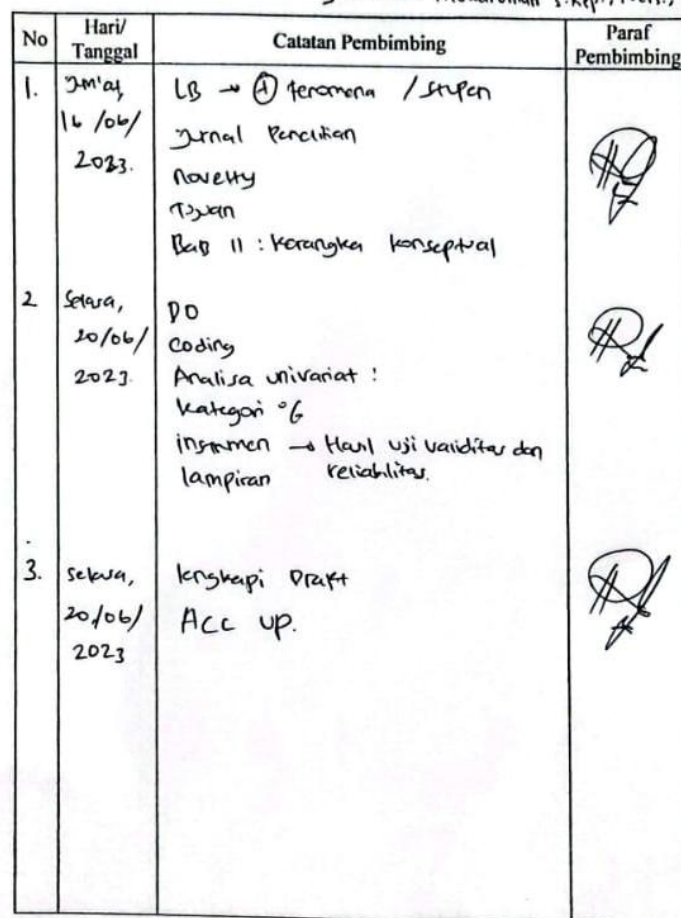 S.Kep.,
No
Hari/
Tanggal
Catatan Pembimbing
Paraf
Pembimbing
1.
Jum'at,
16/06/
2023.
LB → + fenomena / stupen
Jurnal Penelitian
novelty
Tujuan
Bab II : Kerangka konseptual
2
Selasa,
20/06/
2023.
DO
Coding
Analisa univariat :
Kategori %
instrumen → Hasil uji validitas dan
reliabilitas.
lampiran
3.
Selasa,
20/06/
2023
lengkapi Draft
ACC UP.